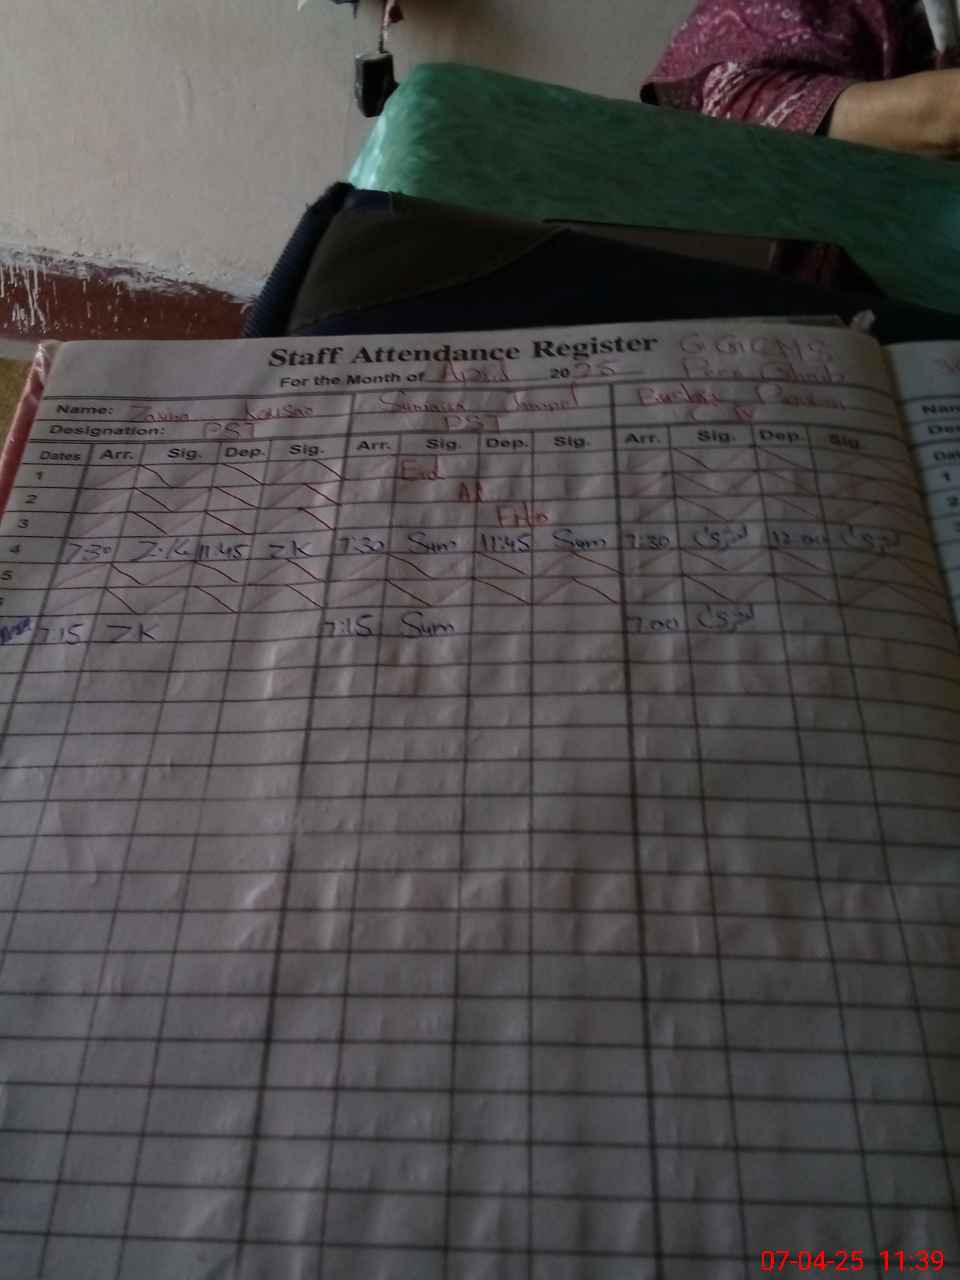 Staff Attendance Register GGCMS
For the Month of April 2025
Name: Kousar
Designation: PST PST CT
Dates Arr. Sig. Dep. Sig. Arr. Sig. Dep. Sig. Arr. Sig. Dep. Sig.
1 Eid 1
2 Al 2
3 Fitr
4 7:30 Z.K 11:45 ZK 7:30 Sum 11:45 Sum 7:30 12:00
5
7:15 ZK 7:15 Sum 7:00
07-04-25 11:39